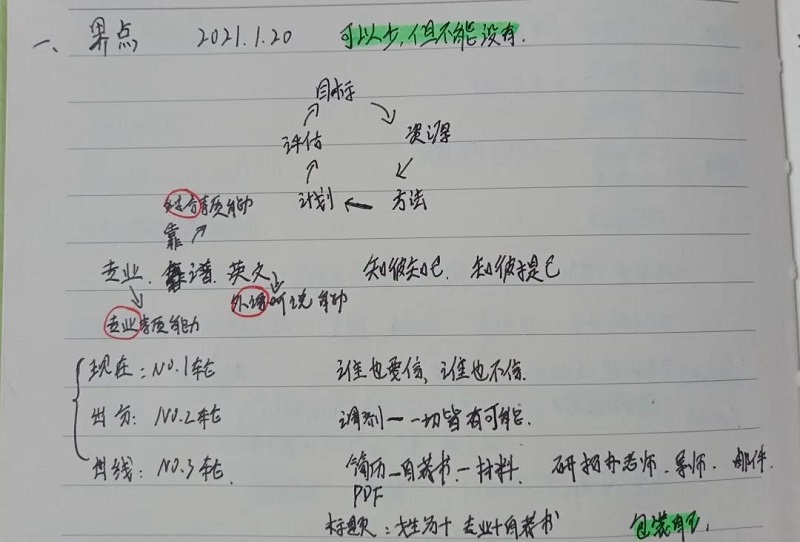 一、果点 2021.1.20 可以少,但不能没有.
目标
评估 资源
计划 方法
综合素质能力
靠
专业. 靠谱. 英文 知彼知己. 知彼提己
外语听说能力
专业素质能力
现在: NO.1轮 谁也要信, 谁也不信.
出分: NO.2轮 调剂——一切皆有可能.
出线: NO.3轮. 简历—自荐书—材料. 研招办老师. 导师. 邮件.
PDF
标题: 姓名+专业+自荐书 包装自己.